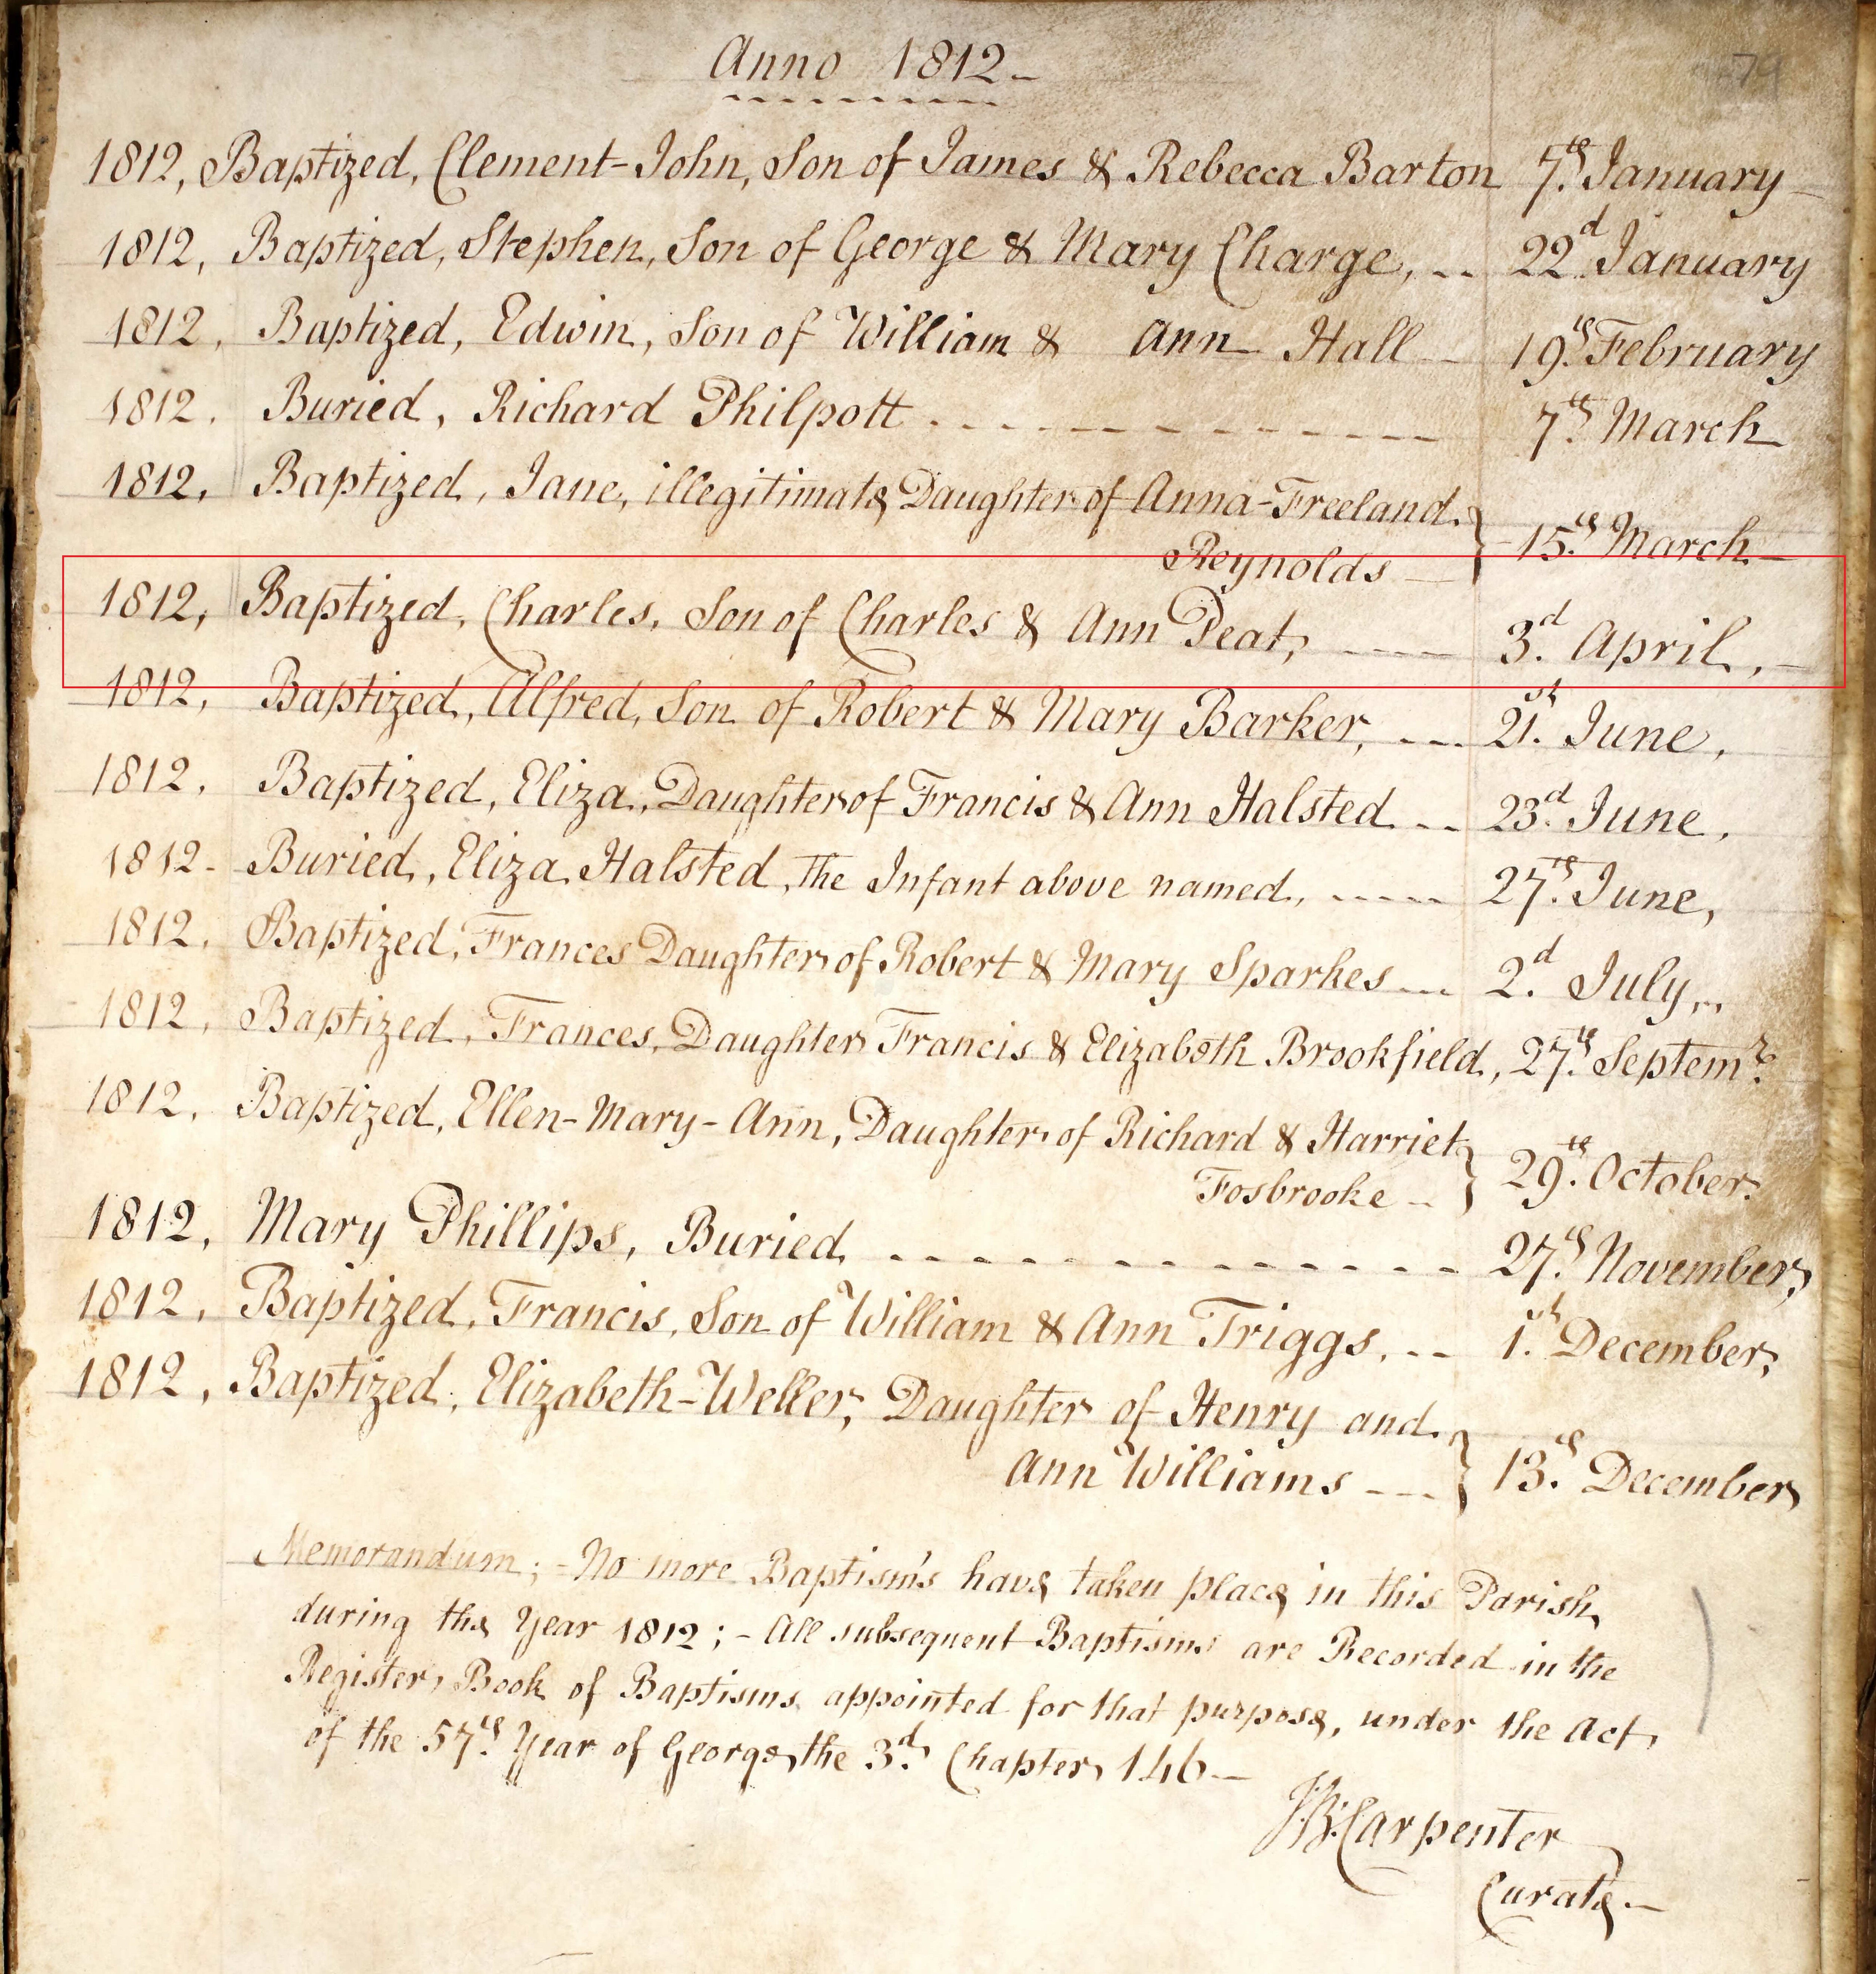 Anno 1812
79
1812, Baptized, Clement-John, Son of James & Rebecca Barton 7th January
1812, Baptized, Stephen, Son of George & Mary Charge, 22d January
1812, Baptized, Edwin, Son of William & Ann Hall 19th February
1812. Buried, Richard Philpott 7th March
1812, Baptized, Jane, illegitimate Daughter of Anna-Freeland
Reynolds 15th March
1812, Baptized, Charles, Son of Charles & Ann Peat, 3d April,
1812, Baptized, Alfred, Son of Robert & Mary Barker, 21st June,
1812. Baptized, Eliza, Daughter of Francis & Ann Halsted 23d June,
1812- Buried, Eliza Halsted, the Infant above named, 27th June,
1812. Baptized, Frances Daughter of Robert & Mary Sparkes 2d July,
1812, Baptized, Frances, Daughter Francis & Elizabeth Brookfield, 27th Septemr
1812, Baptized, Ellen-Mary-Ann, Daughter of Richard & Harriet
Fosbrooke 29th October
1812, Mary Phillips, Buried 27th November,
1812, Baptized, Francis, Son of William & Ann Triggs, 1st December,
1812, Baptized, Elizabeth-Weller, Daughter of Henry and
Ann Williams 13th December
Memorandum; - No more Baptism's have taken place in this Parish
during the Year 1812; - All subsequent Baptisms are Recorded in the
Register Book of Baptisms appointed for that purpose, under the Act
of the 57th Year of George the 3d Chapter 146
Carpenter
Curate